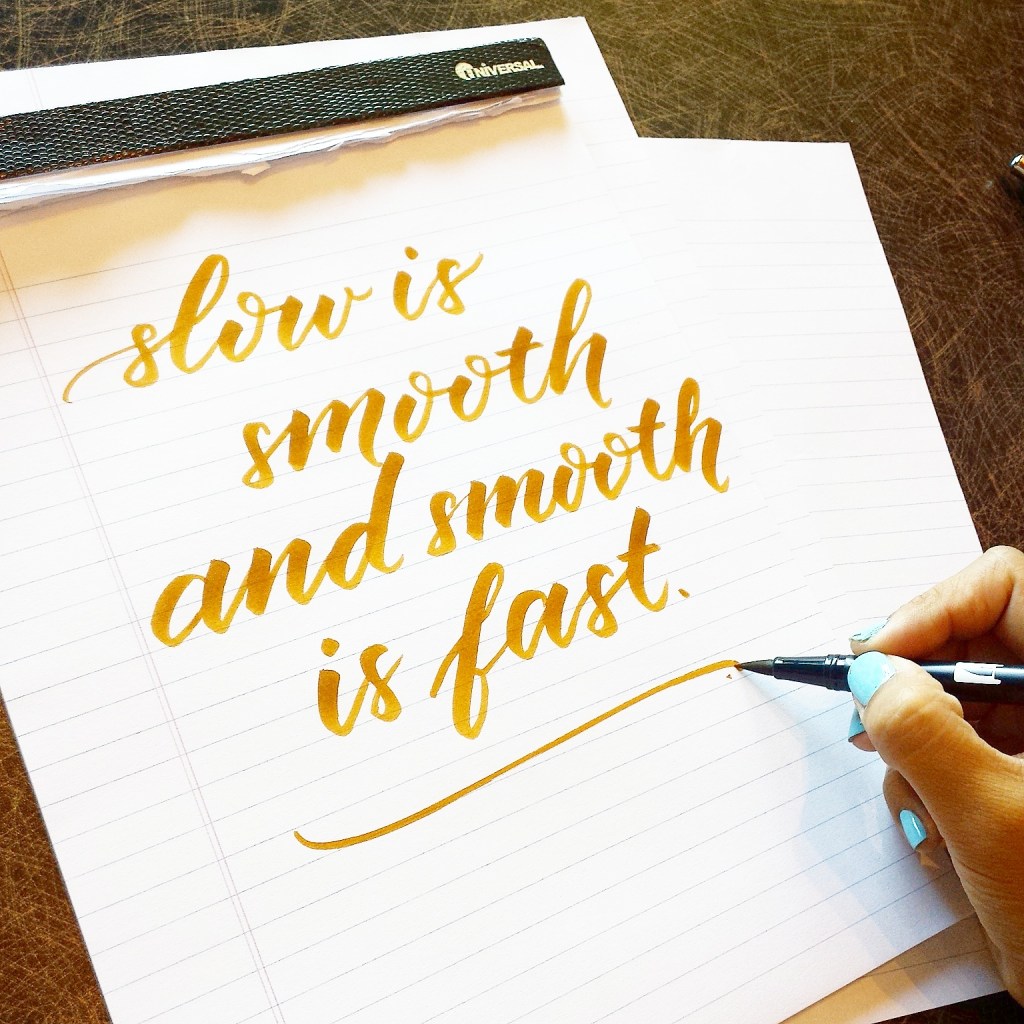 UNIVERSAL
slow is
smooth
and smooth
is fast.